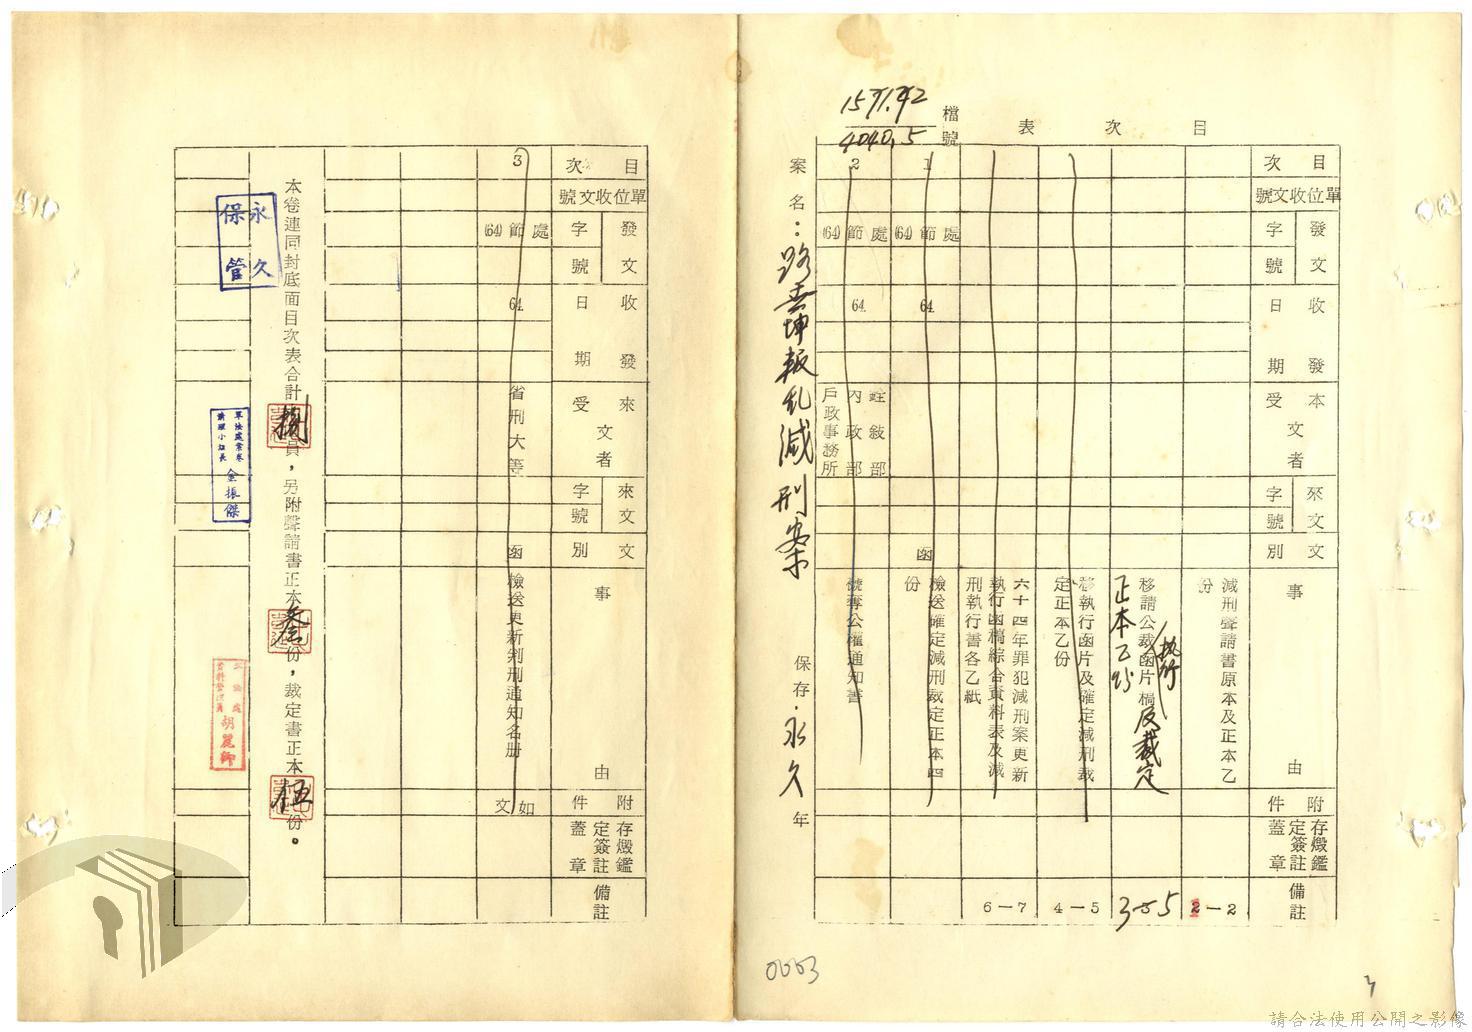 目次表
檔號
1571.42
4040.5
案名：路丟坤叛乱減刑案
保存永久年
目次
單位收文號
發文
字號
收發
日期
本文受者
來文
字號
文別
事由
附件
存燬鑑定簽註蓋章
備註
減刑聲請書原本及正本乙份
2－2
移請公裁函片稿及裁定
執行
正本乙份
3-5
移執行函片及確定減刑裁定正本乙份
4－5
六十四年罪犯減刑案更新執行函稿綜合資料表及減刑執行書各乙紙
6－7
1
(64)節處
64.
函
檢送確定減刑裁定正本四份
2
(64)節處
64.
銓敍部
內政部
戶政事務所
褫奪公權通知書
0003
3
目次
單位收文號
發文
字號
收發
日期
來文受者
來文
字號
文別
事由
附件
存燬鑑定簽註蓋章
備註
3
(64)節處
64.
省刑大等
函
檢送更新判刑通知名册
如文
本卷連同封底面目次表合計捌員，另附聲請書正本叁份，裁定書正本伍份。
永久保管
軍法處案卷
清理小組長
金振傑
軍法處
資料管理員
胡麗卿
請合法使用公開之影像